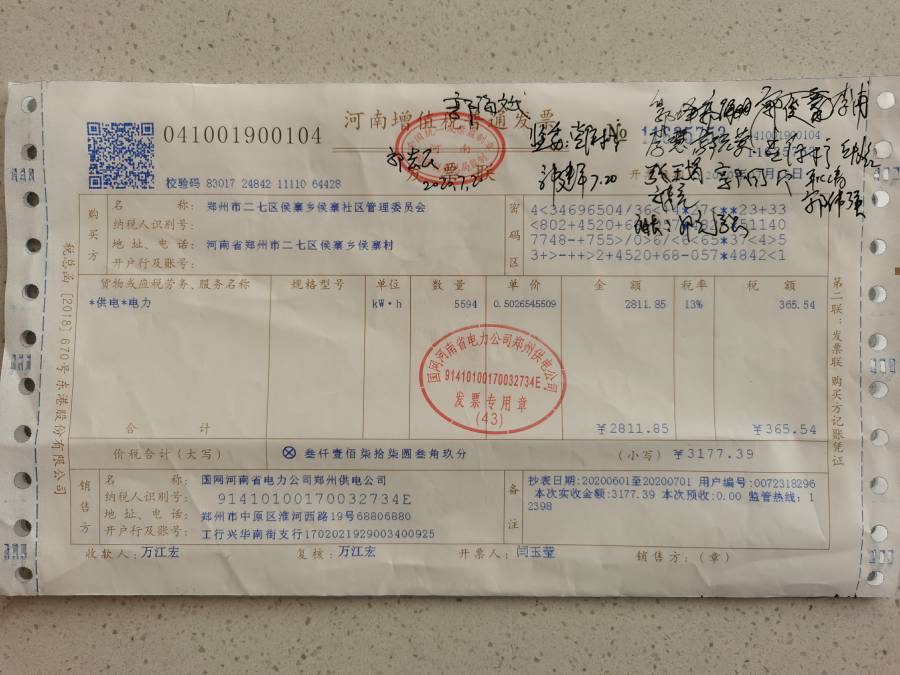 041001900104
河南增值税普通发票
发票联
041001900104
校验码 83017 24842 11110 64428
购买方
名 称: 郑州市二七区侯寨乡侯寨社区管理委员会
纳税人识别号:
地 址、电 话: 河南省郑州市二七区侯寨乡侯寨村
开户行及账号:
密码区
3+>-++>2+4520+68-057*4842<1
货物或应税劳务、服务名称 规格型号 单位 数 量 单 价 金 额 税率 税 额
*供电*电力 kW·h 5594 0.5026545509 2811.85 13% 365.54
合 计 ¥2811.85 ¥365.54
价税合计(大写) ⊗ 叁仟壹佰柒拾柒圆叁角玖分 (小写) ¥3177.39
国网河南省电力公司郑州供电公司
91410100170032734E
发票专用章
(43)
销售方
名 称: 国网河南省电力公司郑州供电公司
纳税人识别号: 91410100170032734E
地 址、电 话: 郑州市中原区淮河西路19号68806880
开户行及账号: 工行兴华南街支行1702021929003400925
备注
抄表日期:20200601至20200701 用户编号:0072318296
本次实收金额:3177.39 本次预收:0.00 监管热线:1
2398
收款人: 万江宏 复核: 万江宏 开票人: 闫玉莹 销售方:(章)
税总函〔2018〕670号 东港股份有限公司
第二联:发票联 购买方记账凭证